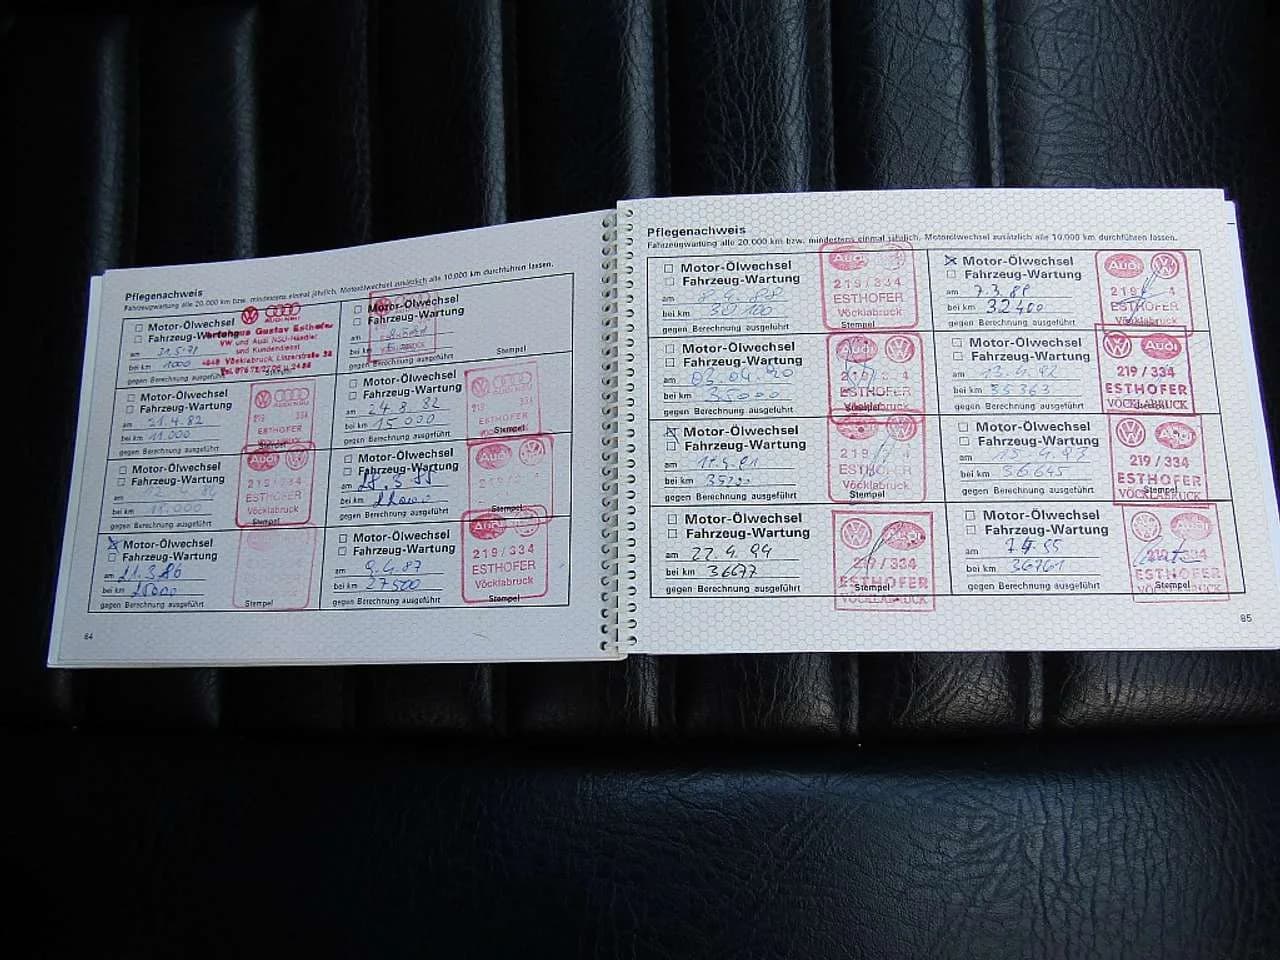 Pflegenachweis
Fahrzeugwartung alle 20.000 km bzw. mindestens einmal jährlich, Motorölwechsel zusätzlich alle 10.000 km durchführen lassen.
Motor-Ölwechsel
Fahrzeug-Wartung
am
bei km 1000
gegen Berechnung ausgeführt
Gustav Esthofer
VW und Audi NSU-Händler
und Kundendienst
Vöcklabruck, Linzerstraße
Motor-Ölwechsel
Fahrzeug-Wartung
am
bei km
gegen Berechnung ausgeführt
Stempel
Motor-Ölwechsel
Fahrzeug-Wartung
am 21.4.82
bei km 11.000
gegen Berechnung ausgeführt
ESTHOFER
Stempel
Motor-Ölwechsel
Fahrzeug-Wartung
am 24.8.82
bei km 15000
gegen Berechnung ausgeführt
ESTHOFER
Stempel
Motor-Ölwechsel
Fahrzeug-Wartung
am
bei km
gegen Berechnung ausgeführt
Audi
219/334
ESTHOFER
Vöcklabruck
Stempel
Motor-Ölwechsel
Fahrzeug-Wartung
am
bei km
gegen Berechnung ausgeführt
Audi
Stempel
Motor-Ölwechsel
Fahrzeug-Wartung
am 21.3.86
bei km
gegen Berechnung ausgeführt
Stempel
Motor-Ölwechsel
Fahrzeug-Wartung
am 9.4.87
bei km 27500
gegen Berechnung ausgeführt
Audi
219/334
ESTHOFER
Vöcklabruck
Stempel
64
Pflegenachweis
Fahrzeugwartung alle 20.000 km bzw. mindestens einmal jährlich, Motorölwechsel zusätzlich alle 10.000 km durchführen lassen.
Motor-Ölwechsel
Fahrzeug-Wartung
am
bei km 32100
gegen Berechnung ausgeführt
Audi
219/334
ESTHOFER
Vöcklabruck
Stempel
Motor-Ölwechsel
Fahrzeug-Wartung
am
bei km 32400
gegen Berechnung ausgeführt
Audi
ESTHOFER
Vöcklabruck
Motor-Ölwechsel
Fahrzeug-Wartung
am 03.04.90
bei km 35000
gegen Berechnung ausgeführt
Audi
ESTHOFER
Stempel
Motor-Ölwechsel
Fahrzeug-Wartung
am 13.4.92
bei km 35363
gegen Berechnung ausgeführt
Audi
219/334
ESTHOFER
VÖCKLABRUCK
Motor-Ölwechsel
Fahrzeug-Wartung
am
bei km
gegen Berechnung ausgeführt
ESTHOFER
Vöcklabruck
Stempel
Motor-Ölwechsel
Fahrzeug-Wartung
am 15.4.93
bei km 36645
gegen Berechnung ausgeführt
Audi
219/334
ESTHOFER
VÖCKLABRUCK
Motor-Ölwechsel
Fahrzeug-Wartung
am 22.4.94
bei km 36677
gegen Berechnung ausgeführt
Audi
219/334
ESTHOFER
Stempel
VÖCKLABRUCK
Motor-Ölwechsel
Fahrzeug-Wartung
am
bei km 36761
gegen Berechnung ausgeführt
Audi
ESTHOFER
Stempel
VÖCKLABRUCK
65